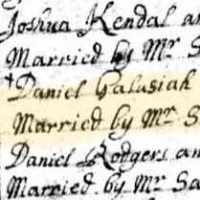 Joshua Kendal an
Married by Mr S
Daniel Galusiah
Married by Mr S
Daniel Rodgers an
Married by Mr Sa